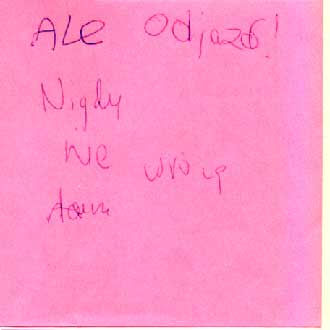 ALE Odjazd!
Nigdy
Nie wrócę